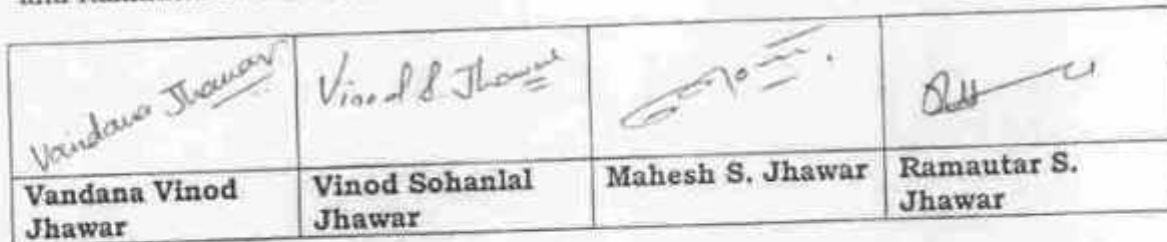 Vandana Jhawar
Vinod S Jhawar
Vandana Vinod Jhawar
Vinod Sohanlal Jhawar
Mahesh S. Jhawar
Ramautar S. Jhawar